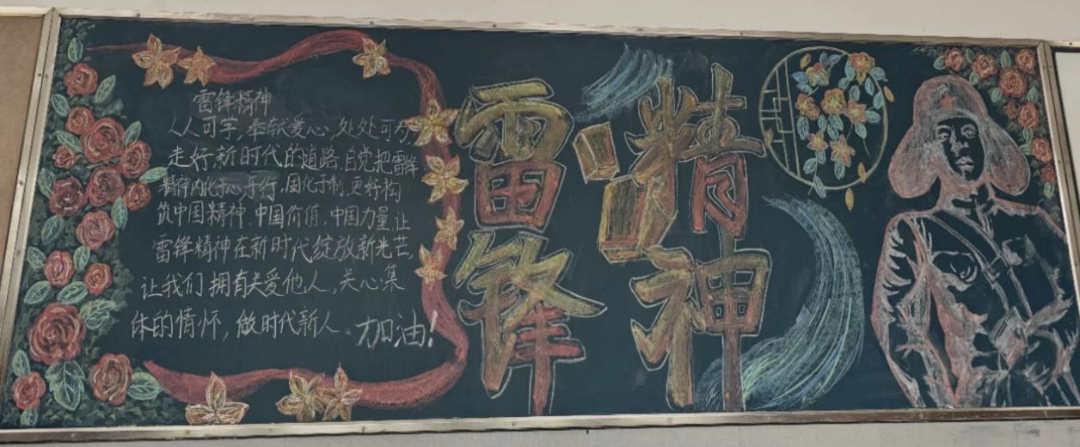 雷锋精神
人人可学,奉献爱心,处处可为,
走好新时代的道路,自觉把雷锋
精神内化于心、于行,固化于制,更好构
筑中国精神,中国价值,中国力量让
雷锋精神在新时代绽放新光芒,
让我们拥有关爱他人,关心集
体的情怀,做时代新人。加油!
雷锋
精神